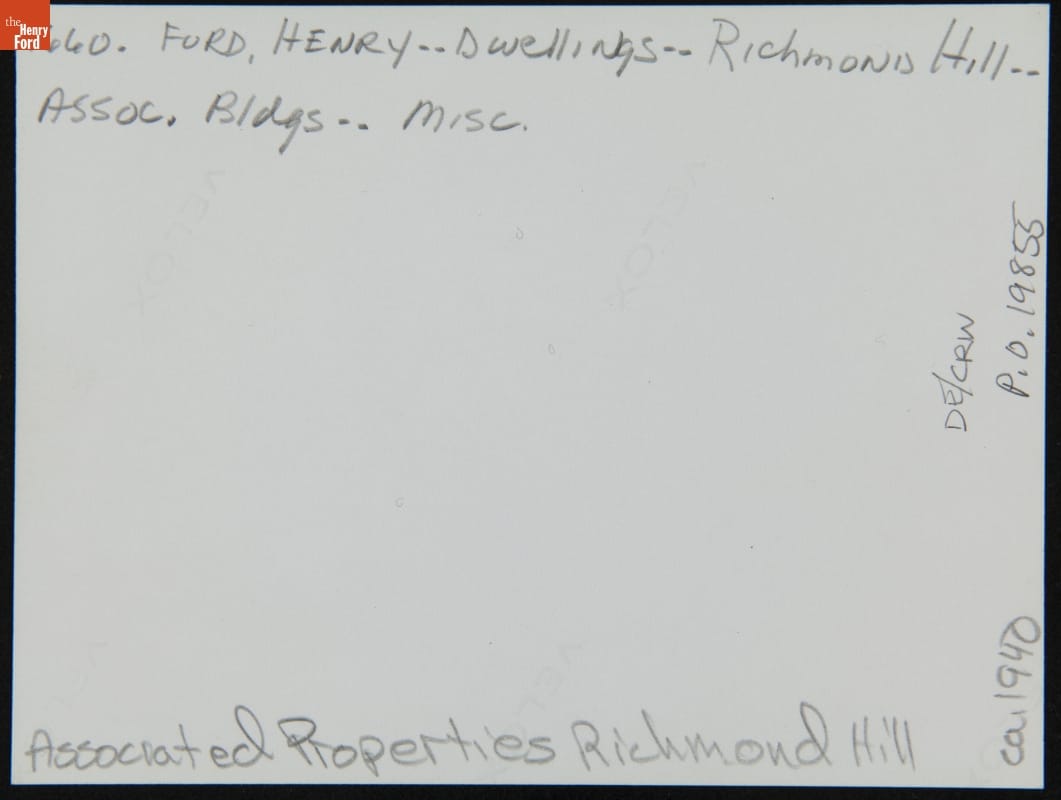 the
Henry
Ford
660. FORD, HENRY-- Dwellings-- Richmond Hill--
Assoc. Bldgs-- Misc.
P.O. 19855
DE/CRW
ca. 1940
Associated Properties Richmond Hill
VELOX
VELOX